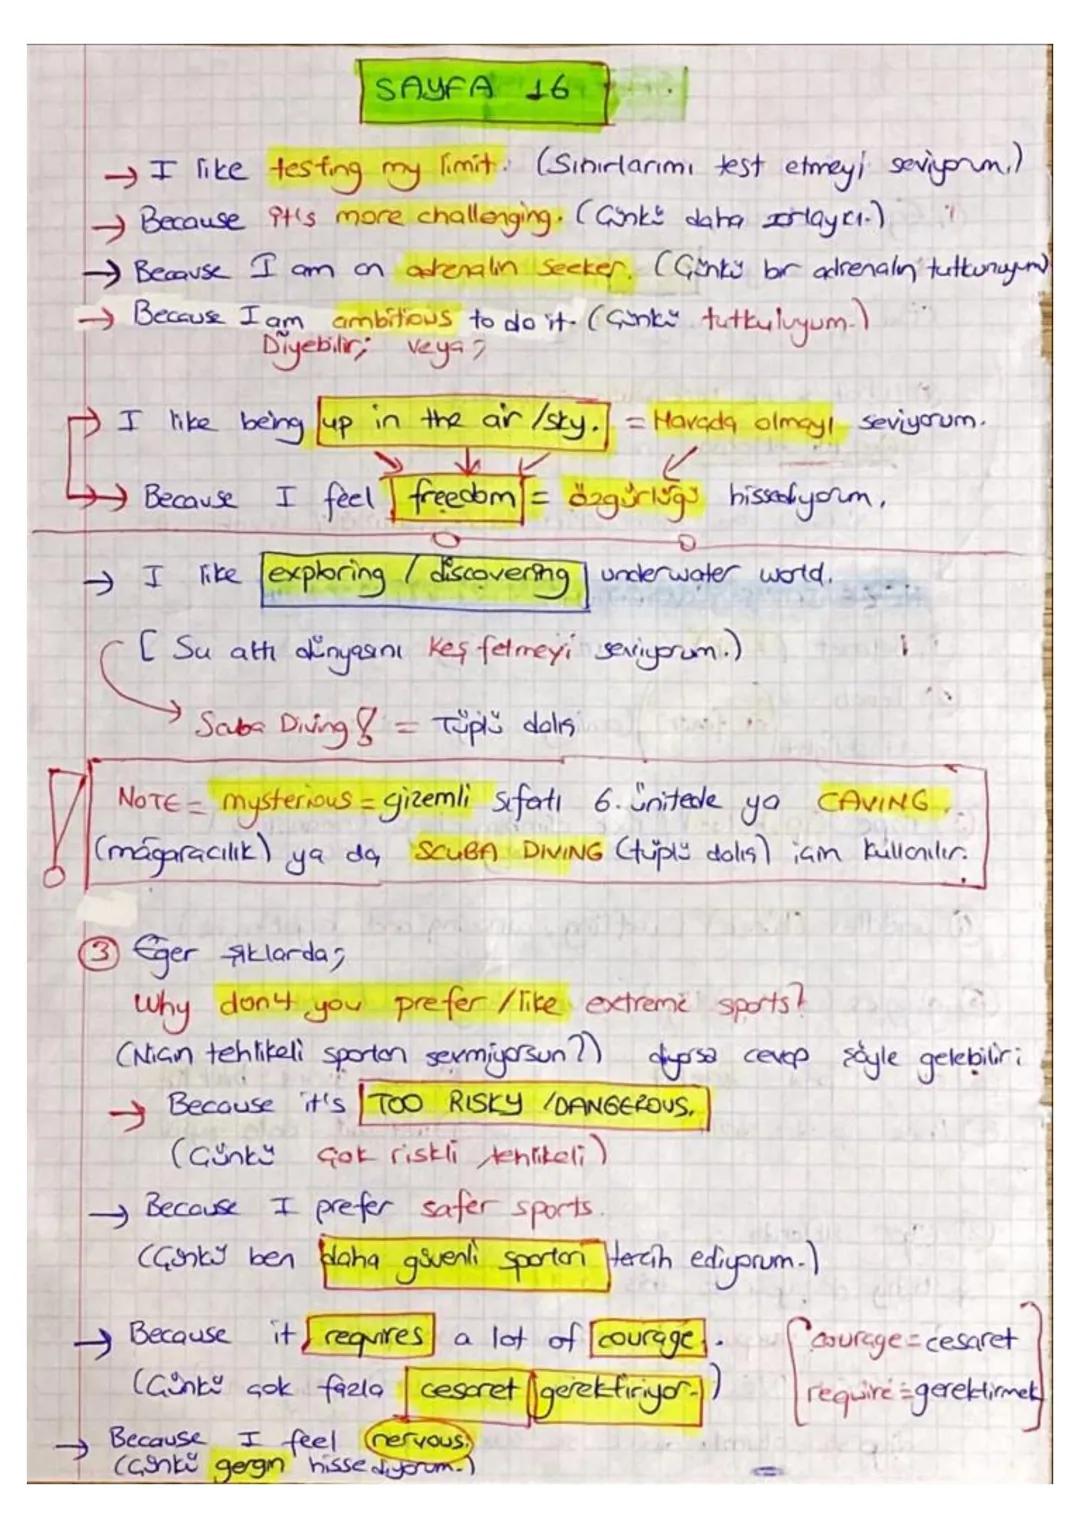 SAYFA 16
→ I like testing my limit. (Sınırlarımı test etmeyi seviyorum.)
→ Because it's more challenging. (Çünkü daha zorlayıcı.)
→ Because I am an adrenalin seeker. (Çünkü bir adrenalin tutkunuyum)
→ Because I am ambitious to do it. (Çünkü tutkuluyum.)
Diyebilir; veya;
→ I like being up in the air/sky. = Havada olmayı seviyorum.
→ Because I feel freedom = özgürlüğü hissediyorum.
→ I like exploring / discovering underwater world.
[ Su altı dünyasını keşfetmeyi seviyorum.)
→ Scuba Diving! = Tüplü dalış
NOTE = mysterious = gizemli sıfatı 6. ünitede ya CAVING
(mağaracılık) ya da SCUBA DIVING (tüplü dalış) için kullanılır.
3 Eğer şıklarda;
Why don't you prefer / like extreme sports?
(Niçin tehlikeli sporları sevmiyorsun?) diyorsa cevap şöyle gelebilir:
→ Because it's TOO RISKY / DANGEROUS.
(Çünkü çok riskli tehlikeli)
→ Because I prefer safer sports.
(Çünkü ben daha güvenli sporları tercih ediyorum.)
→ Because it requires a lot of courage.
courage = cesaret
(Çünkü çok fazla cesaret gerektiriyor.)
require = gerektirmek
→ Because I feel nervous.
(Çünkü gergin hissediyorum.)